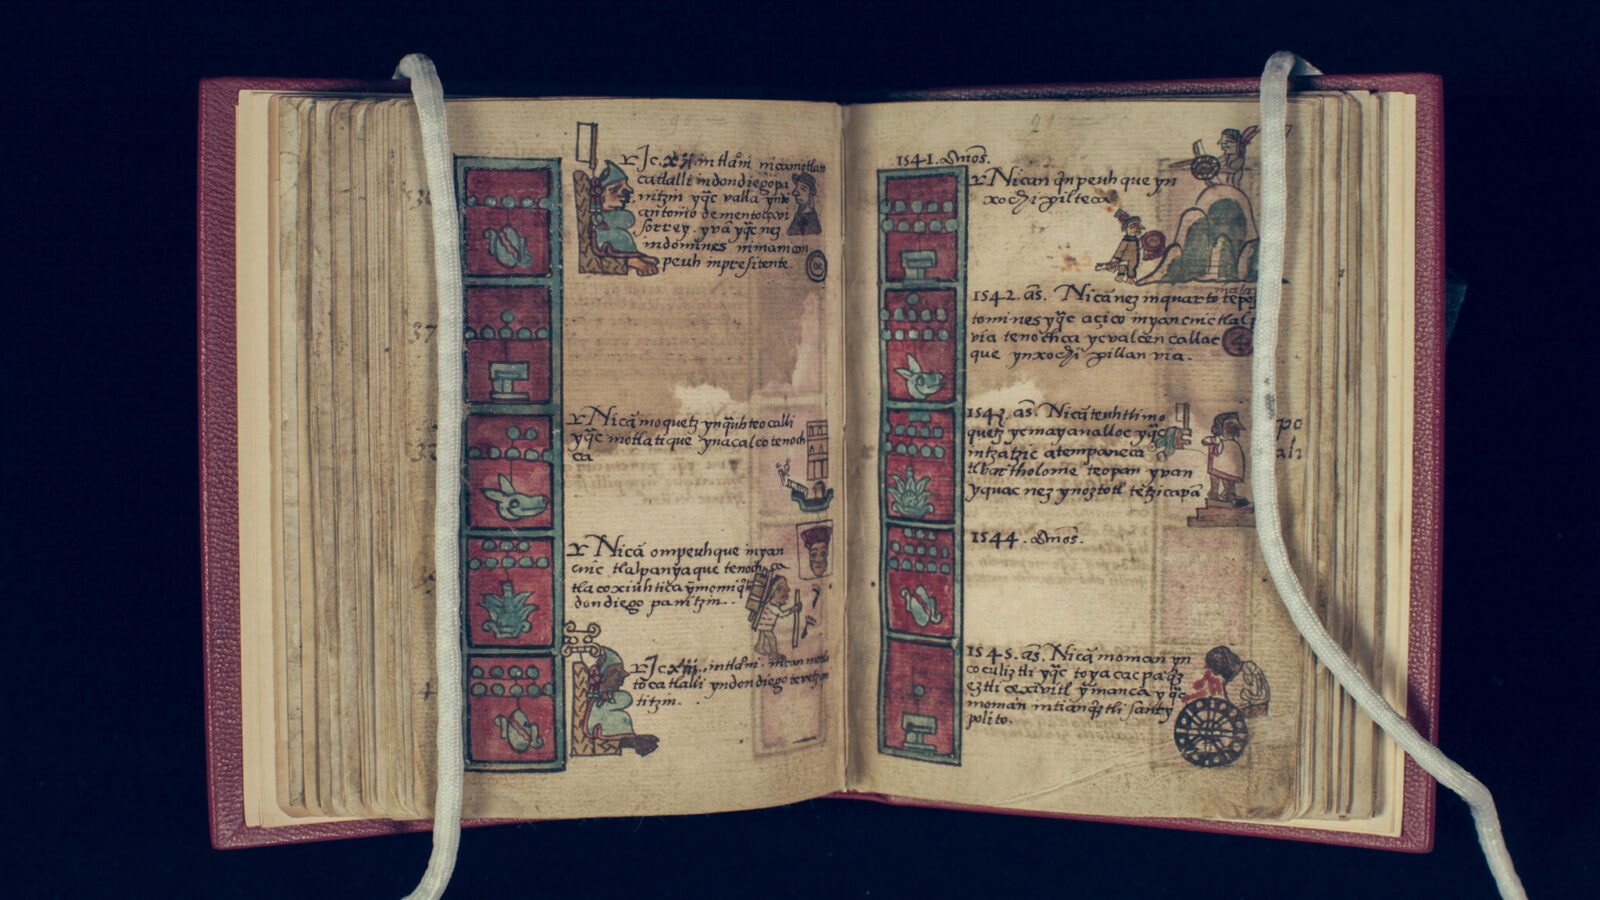 Jc. xii. intlańi nicamotlan
catlalli indondiegopa
nitzin yq̃c valla ynto
antonio de mentoça vi
sorrey. yvā yq̃c nez
indomines nimaman
peuh inpresitente.
Nicā moquetz ynq̃uhteocalli
yq̃c motlatique ynacalco tenoch
ca
Nicā ompeuhque inyan
cuic tlalpan yaque tenochca
tlacoxiuhtica ỹmomiq̃li
dondiego panitzin.
Jc xiii. intlańi. nican motla
tōca tlalli yndondiego tevetzqui
titzin.
1541. Años.
Nican q̃npeuhque yn
xochipilteca
1542. as. Nicā nez inquarto tepoz
tomines yq̃c açico inyancuic tlalp
via tenochca ycvalcēn callac
que ynxochipillan via.
1543. as. Nicā teuhtli mo
quetz ycmayanalloc yq̃c
intzatzic atempaneca
tlbartholome teopan yvan
yquac nez ynoztotl tētzicapā
1544. Años.
1545. as. Nicā moman yn
cocoliztli yq̃c toyacacpa q̃z
eztli cexivitl ỹmanca yq̃c
moman intianq̃ztli santy
polito.